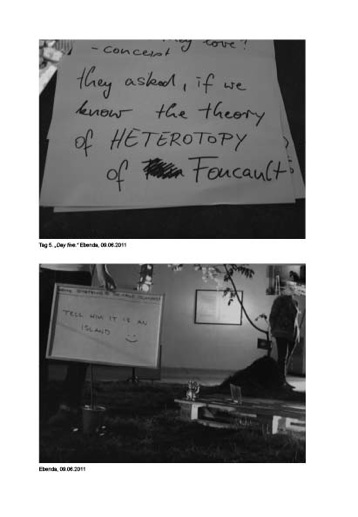 my love?
- concept
they asked, if we
know the theory
of HETEROTOPY
of Foucault
Tag 5. „Day five." Ebenda, 09.06.2011
TELL HIM IT IS AN
ISLAND
Ebenda, 09.06.2011